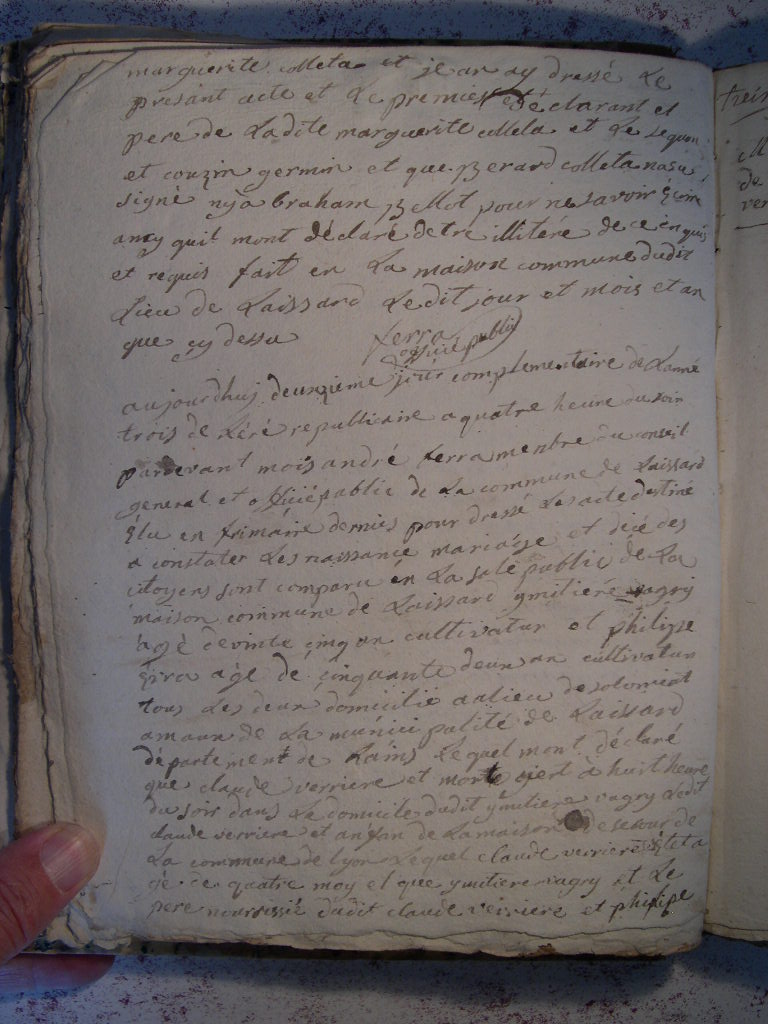 marguerite colleta et je an ay dressé Le
presant acte et Le premier et déclarant et
pere de Ladite marguerite colleta et Le segon
et couzin germin et que Berard colleta nasu
signé ny abraham Bellot pour ne savoir Ecrire
ancy quil mont déclaré detre illitéré de ce enquis
et requis fait en La maison commune dudit
Lieu de Laissard Ledit jour et mois et an
que cy dessu ferra
officié public
aujourdhuj deunzième jour complementaire de Lanné
trois de Léré republicaine a quatre heure du soir
pardevant mois andré ferra menbre du conseil
general et officié public de La commune de Laissard
Élu en frimaire dernies pour dressé Les acte destiné
a constater Les naissance mariaige et décé des
citoyens sont comparu en La sale public de La
maison commune de Laissard ymitiere vagry
agé de vinte cinq an cultivatur et philipe
age de cinquante deun an cultivatur
tous Les deun domicilié au lieu de
amaun de La municipalité de Laissard
département de Lains Lequel mont déclaré
que claude verriere et morte ÿert à huit heure
du soir dans Le domicile dudit ymitiere vagry Ledit
claude verriere et anfan de La maison de secour de
La commune de lyon Lequel claude verriere Eteta
gé de quatre moy et que ymitiere vagry et Le
pere nourrissié dudit claude verriere et philipe